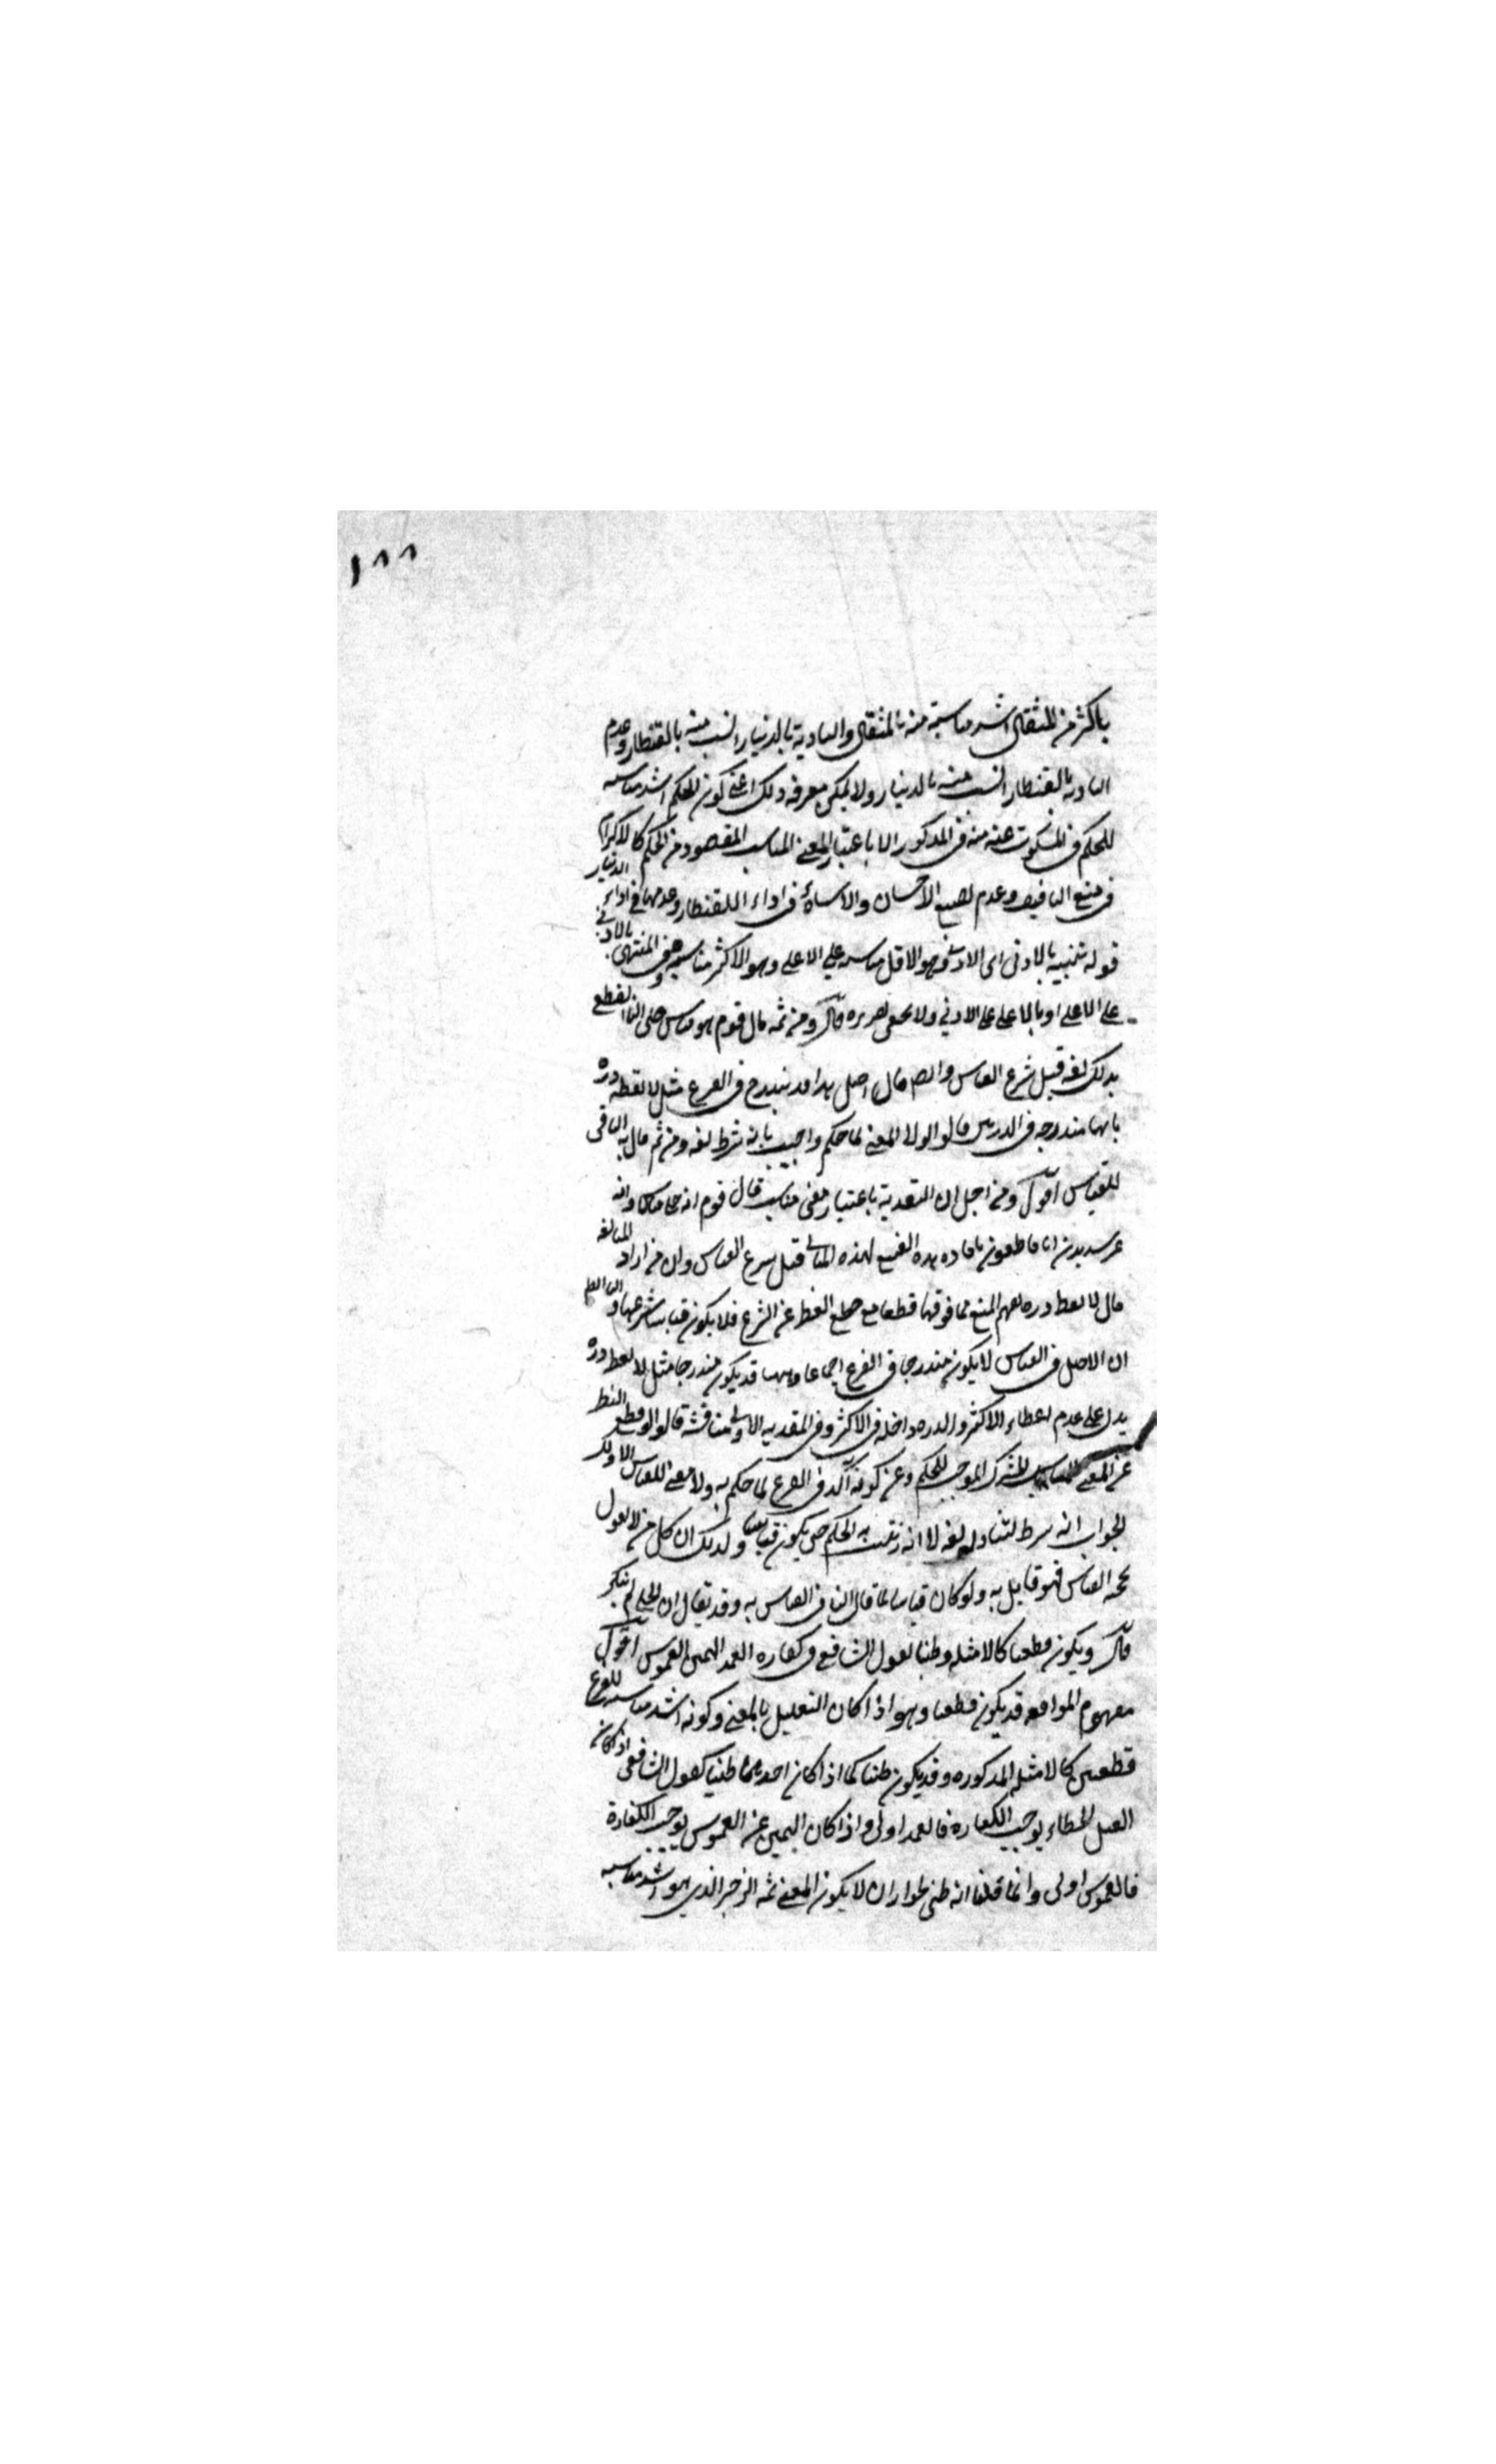 ١٨٨
باكثر من المثقال اشد مناسبة منه بالمثقال والتادية بالدينار انسب منه بالقنطار وعدم
التادية بالقنطار انسب منه بالدينار ولا يمكن معرفة ذلك اعنى كون الحكم اشد مناسبة
للحكم فى المسكوت عنه منه فى المذكور الا باعتبار المعنى المناسب المقصود من الحكم كالاكرام
فى منع التافيف وعدم تضييع الاحسان والاساءة فى اداء القنطار وعدمها فى اداء الدينار
قوله تنبيه بالادنى اى الادنى وهو الاقل مناسبة على الاعلى وهو الاكثر مناسبة وفى المنتهى بالادنى
على الاعلى او بالاعلى على الادنى ولا يخفى تحريره قال ومن ثمة قال قوم هو قياس جلى لنا القطع
بذلك لغة قبل شرع القياس وايضا فان اصل هذا قد يندرج فى الفرع مثل لا تعطه ذرة
فانها مندرجة فى الذرتين قالوا لولا المعنى لما حكم واجيب بانه شرط لغة ومن ثم قال به النافى
للقياس اقول ومن اجل ان التعدية باعتبار معنى مناسب قال قوم انه
انا قاطعون بافادة هذه الصيغ لهذه المعانى قبل شرع القياس وان من اراد المبالغة
قال لا تعط ذرة يفهم المنع مما فوقها قطعا مع قطع النظر عن الشرع فلا يكون قياسا شرعيا
ان الاصل فى القياس لا يكون مندرجا فى الفرع اجماعا وههنا قد يكون مندرجا مثل لا تعط ذرة
يدل على عدم اعطاء الاكثر والذرة داخلة فى الاكثر وفى المقدمة الاولى مناقشة قالوا لو قطع النظر
عن المعنى المناسب المشترك الموجب للحكم وعن كونه آكد فى الفرع لما حكم به ولا معنى للقياس الا ذلك
الجواب انه شرط لتناوله لغة لا انه يثبت به الحكم حتى يكون قياسا ولذلك ان كل من لا يقول
بحجة القياس فهو قايل به ولو كان قياسا لما قال النافى القياس به وقد يقال ان الجلى لم ينكر
قال ويكون قطعيا كالامثلة وظنيا كقول الشافعى فى كفارة العمد واليمين الغموس اقول
مفهوم الموافقة قد يكون قطعيا وهو اذا كان التعليل بالمعنى وكونه اشد مناسبة للفرع
قطعيين كالامثلة المذكورة وقد يكون ظنيا كما اذا كان احدهما ظنيا كقول الشافعى اذا كان
القتل الخطاء يوجب الكفارة فالعمد اولى واذا كان اليمين غير الغموس يوجب الكفارة
فالغموس اولى وانما قلنا انه ظنى لجواز ان لا يكون المعنى ثمة الزجر الذى هو اشد مناسبة